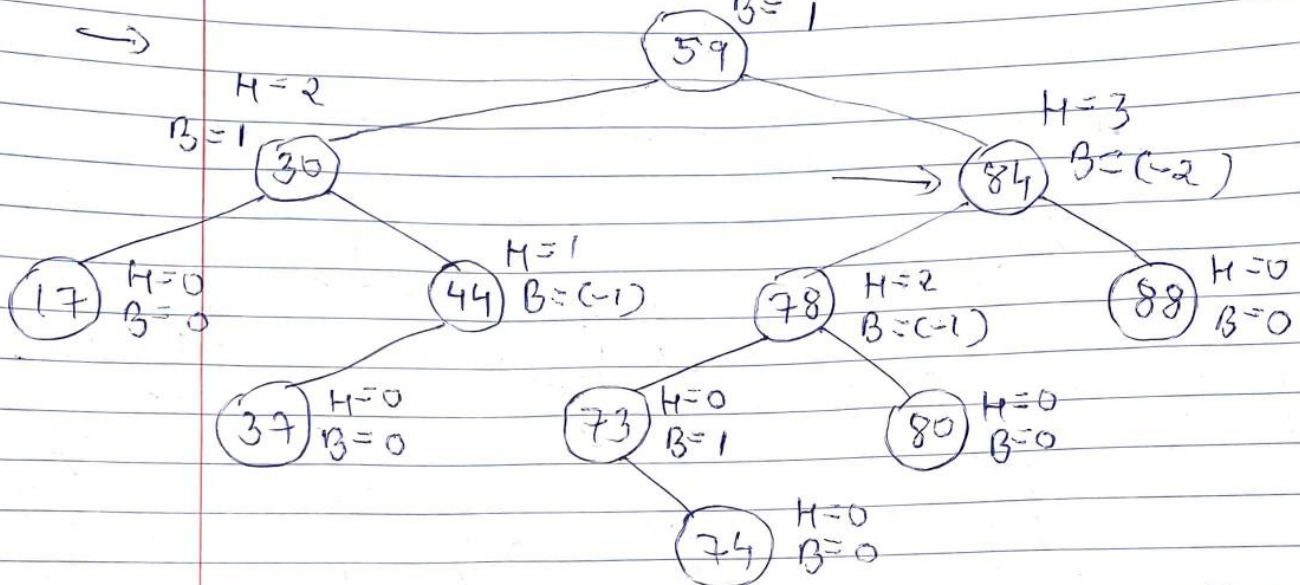 B = 1
59
H = 2
B = 1
30
H = 3
B = (-2)
84
17
H = 0
B = 0
44
H = 1
B = (-1)
78
H = 2
B = (-1)
88
H = 0
B = 0
37
H = 0
B = 0
73
H = 0
B = 1
80
H = 0
B = 0
74
H = 0
B = 0